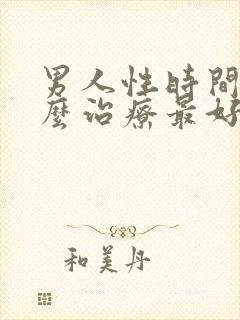 男人性時間
麼治療最好
和美丹